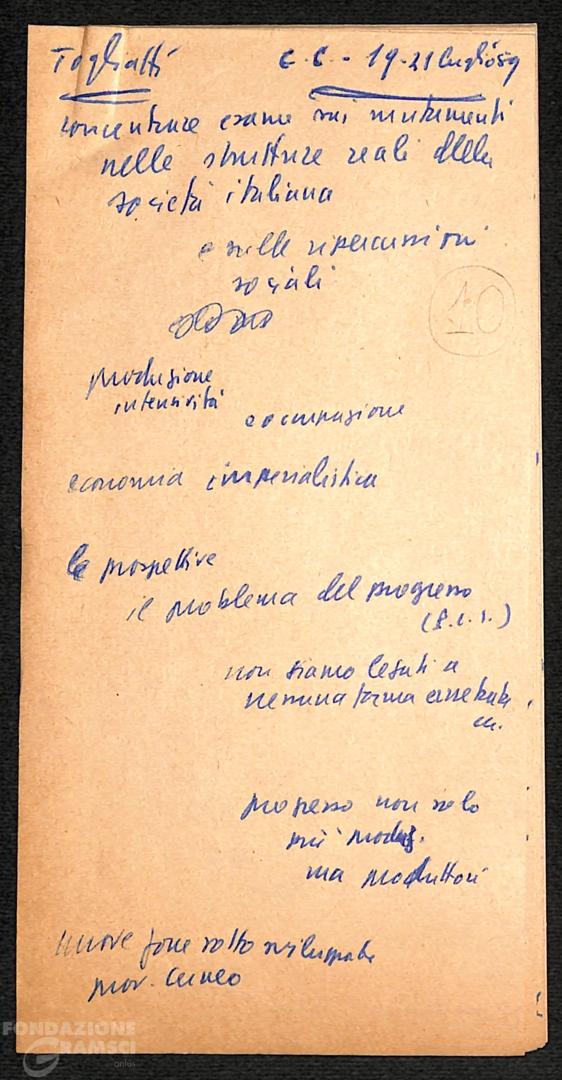 Togliatti C.C. - 19-21 luglio 59
concentrare esame sui mutamenti
nelle strutture reali della
società italiana
e sulle ripercussioni
sociali
10
produzione
intensività
occupazione
economia imperialistica
le prospettive
il problema del progresso
non siamo legati a
nessuna forma
progresso non solo
più produz.
ma produttori
nuove zone sotto sviluppate
prov. Cuneo
FONDAZIONE
GRAMSCI
onlus